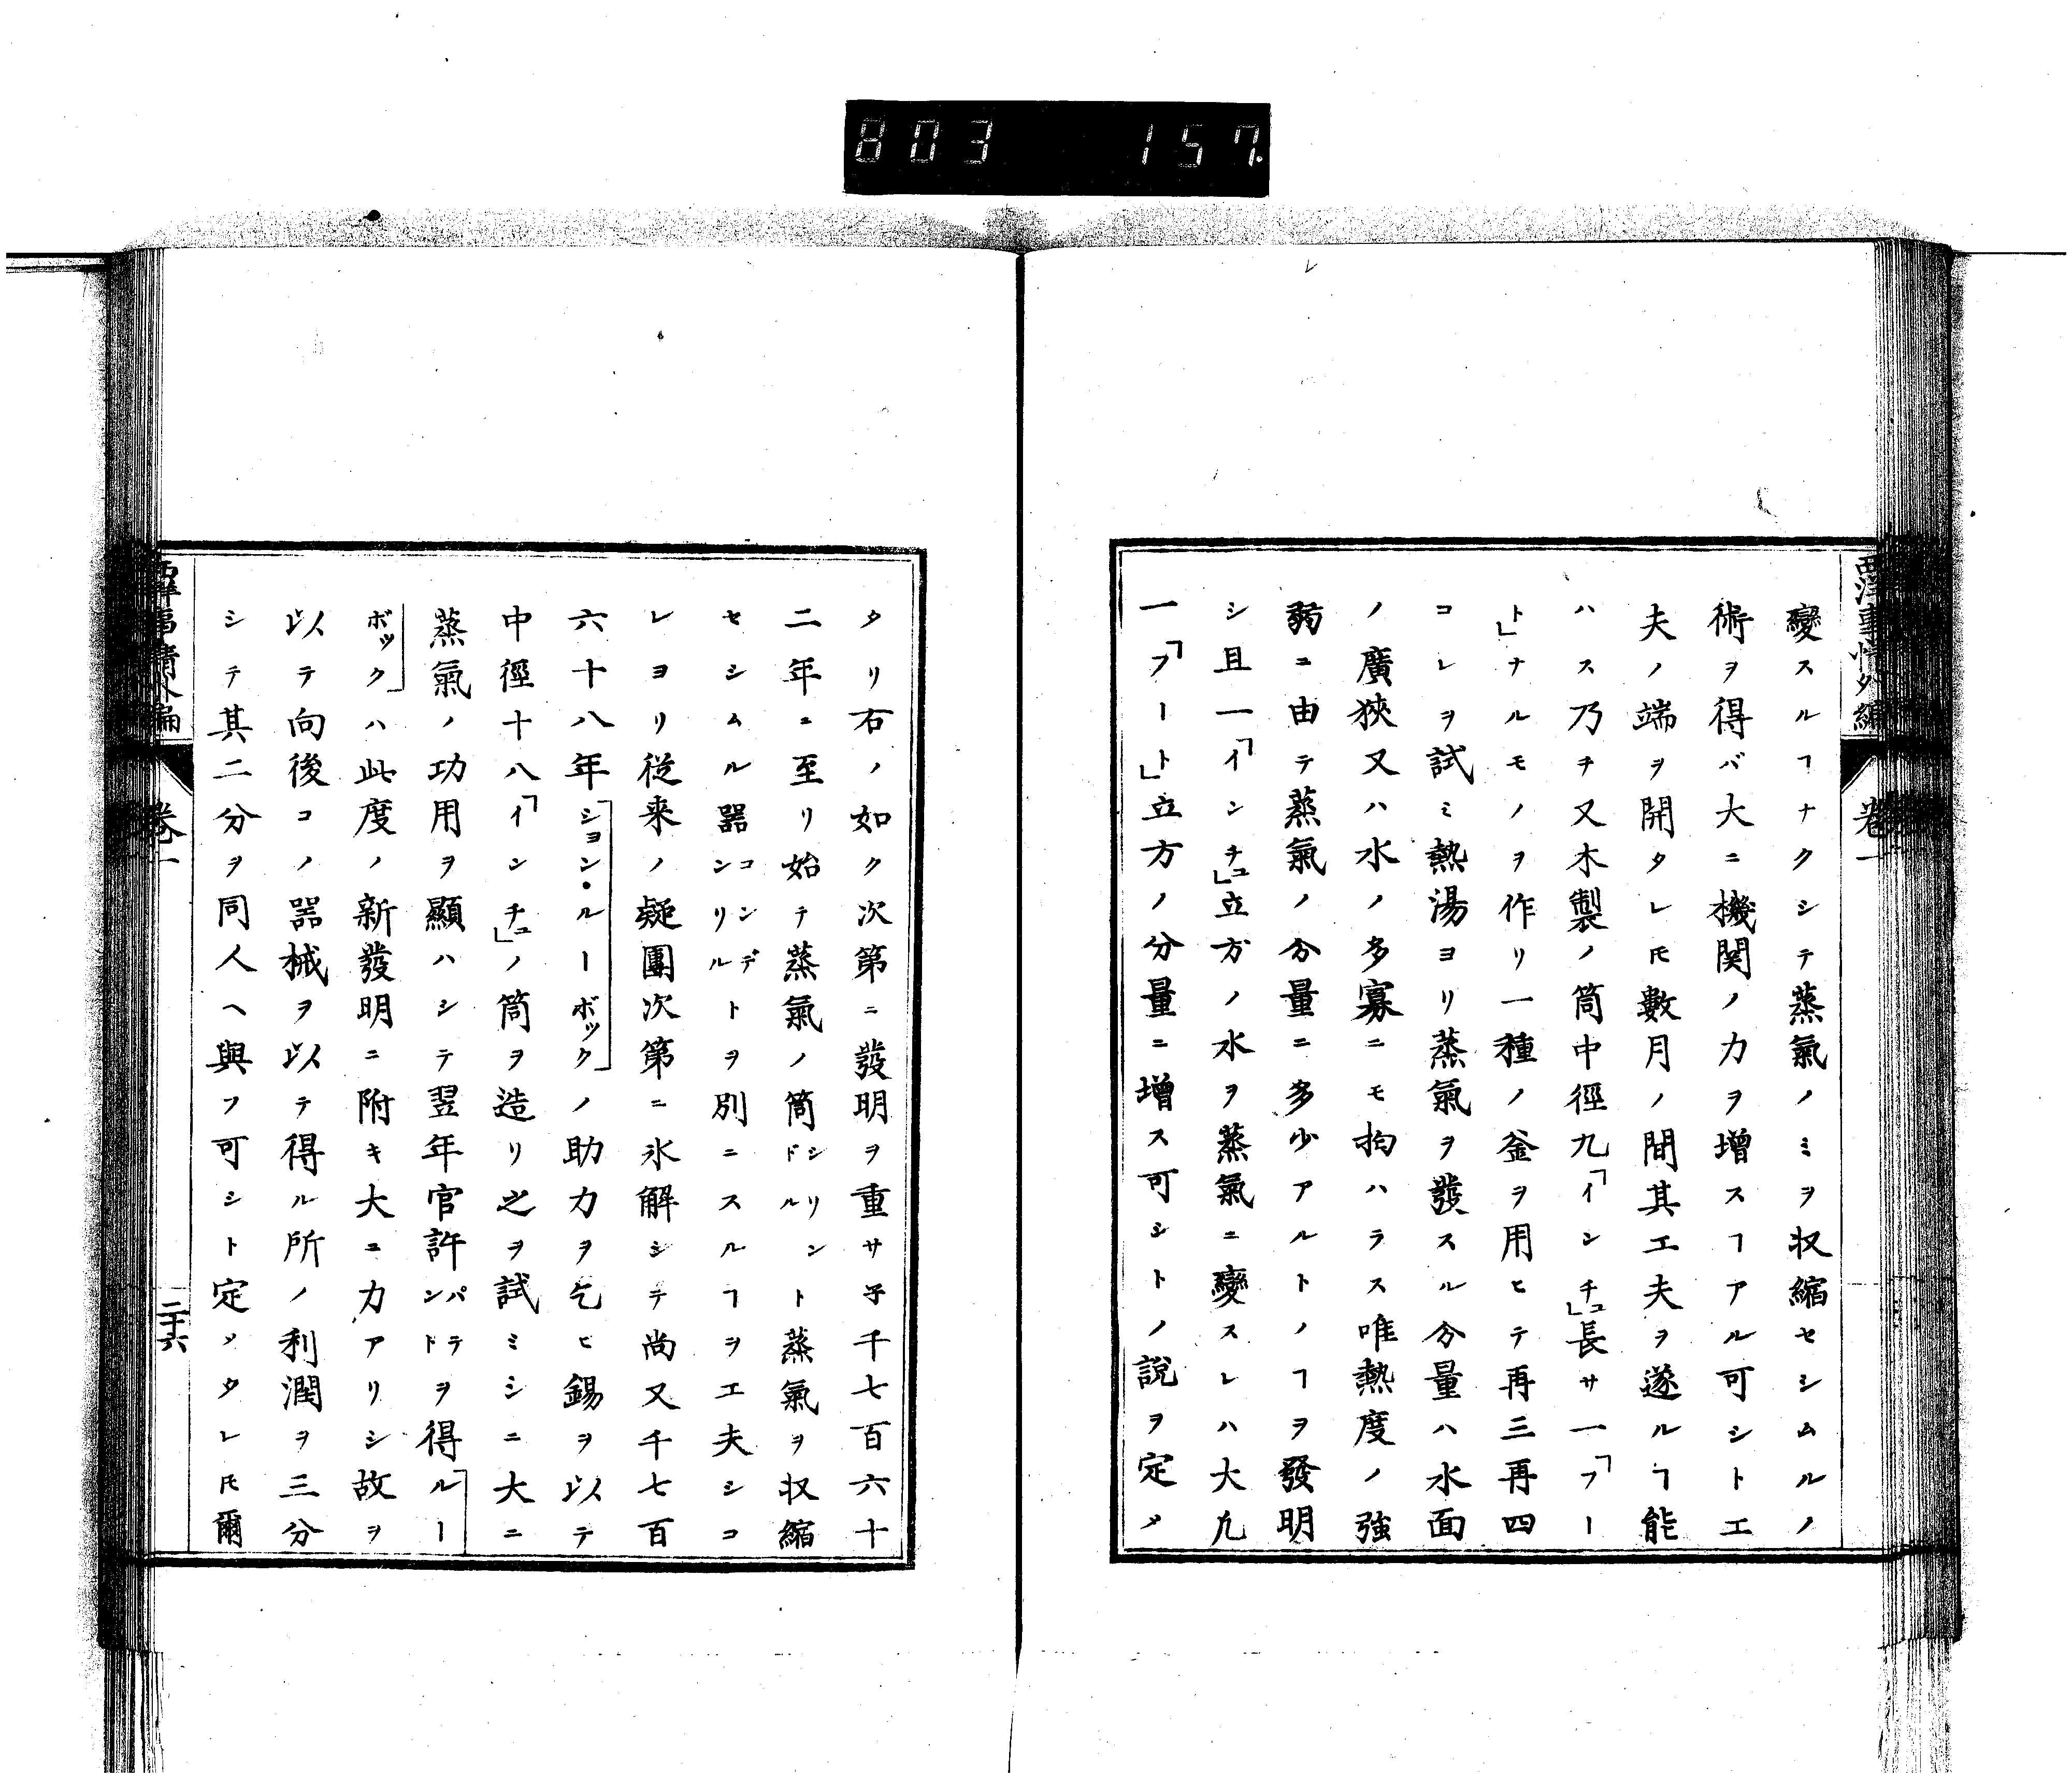 803 157
西洋事情外編
卷一
變スルヿナクシテ蒸氣ノミヲ収縮セシムルノ
術ヲ得バ大ニ機関ノ力ヲ増スヿアル可シト工
夫ノ端ヲ開タレ𪜈數月ノ間其工夫ヲ遂ルヿ能
ハス乃チ又木製ノ筒中徑九「インチュ」長サ一「フー
ト」ナルモノヲ作リ一種ノ釜ヲ用ヒテ再三再四
コレヲ試ミ熱湯ヨリ蒸氣ヲ發スル分量ハ水面
ノ廣狹又ハ水ノ多寡ニモ拘ハラス唯熱度ノ強
弱ニ由テ蒸氣ノ分量ニ多少アルトノヿヲ發明
シ且一「インチュ」立方ノ水ヲ蒸氣ニ變スレハ大凡
一「フート」立方ノ分量ニ増ス可シトノ說ヲ定メ
タリ右ノ如ク次第ニ發明ヲ重サ子千七百六十
二年ニ至リ始テ蒸氣ノ筒シリンドルント蒸氣ヲ収縮
セシムル器コンデンリルトヲ別ニスルヿヲ工夫シコ
レヨリ従来ノ疑團次第ニ氷解シテ尚又千七百
六十八年ション・ルーボックノ助力ヲ乞ヒ錫ヲ以テ
中徑十八「インチュ」ノ筒ヲ造リ之ヲ試ミシニ大ニ
蒸氣ノ功用ヲ顯ハシテ翌年官許パテンドヲ得ルー
ボックハ此度ノ新發明ニ附キ大ニ力アリシ故ヲ
以テ向後コノ器械ヲ以テ得ル所ノ利潤ヲ三分
シテ其二分ヲ同人ヘ與フ可シト定メタレ𪜈爾
西洋事情外編
卷一
二十六